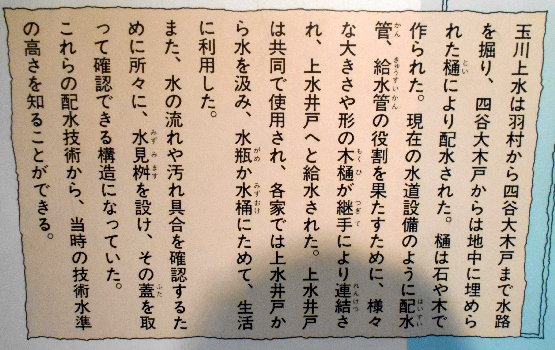 玉川上水は羽村から四谷大木戸まで水路
を掘り、四谷大木戸からは地中に埋めら
れた樋により配水された。樋は石や木で
作られた。現在の水道設備のように配水
管、給水管の役割を果たすために、様々
な大きさや形の木樋が継手により連結さ
れ、上水井戸へと給水された。上水井戸
は共同で使用され、各家では上水井戸か
ら水を汲み、水瓶か水桶にためて、生活
に利用した。
また、水の流れや汚れ具合を確認するた
めに所々に、水見桝を設け、その蓋を取
って確認できる構造になっていた。
これらの配水技術から、当時の技術水準
の高さを知ることができる。